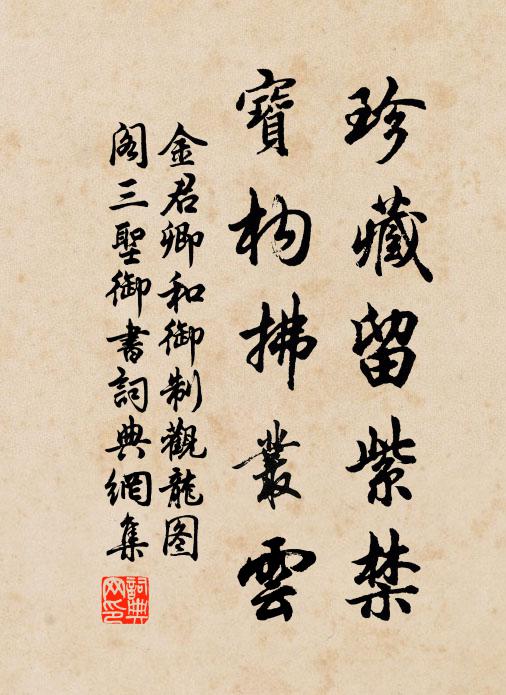 珍藏留紫禁
寶构拂叢雲
金君卿和御制觀龍图
阁三聖御書詞典網集
詞典
网印